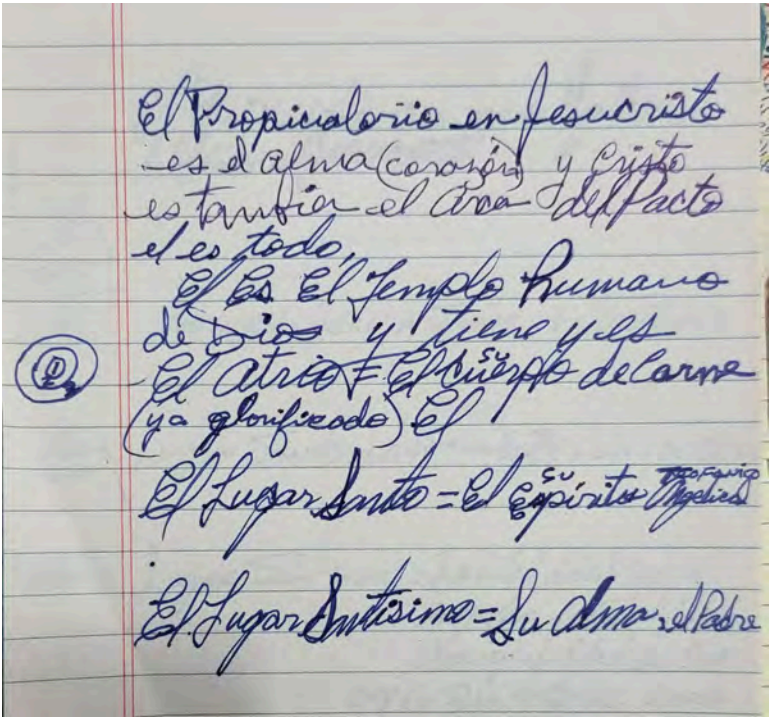 El Propicialorio en Jesucristo
es el alma (corazón) y Cristo
es tambien el Arca del Pacto
el es todo,
El Es El Templo humano
de Dios y tiene y es
El atrio = El su cuerpo de Carne
(ya glorificado) El
El Lugar Santo = El su Espíritu Teofanico Angelical
El Lugar Santisimo = Su Alma, el Padre